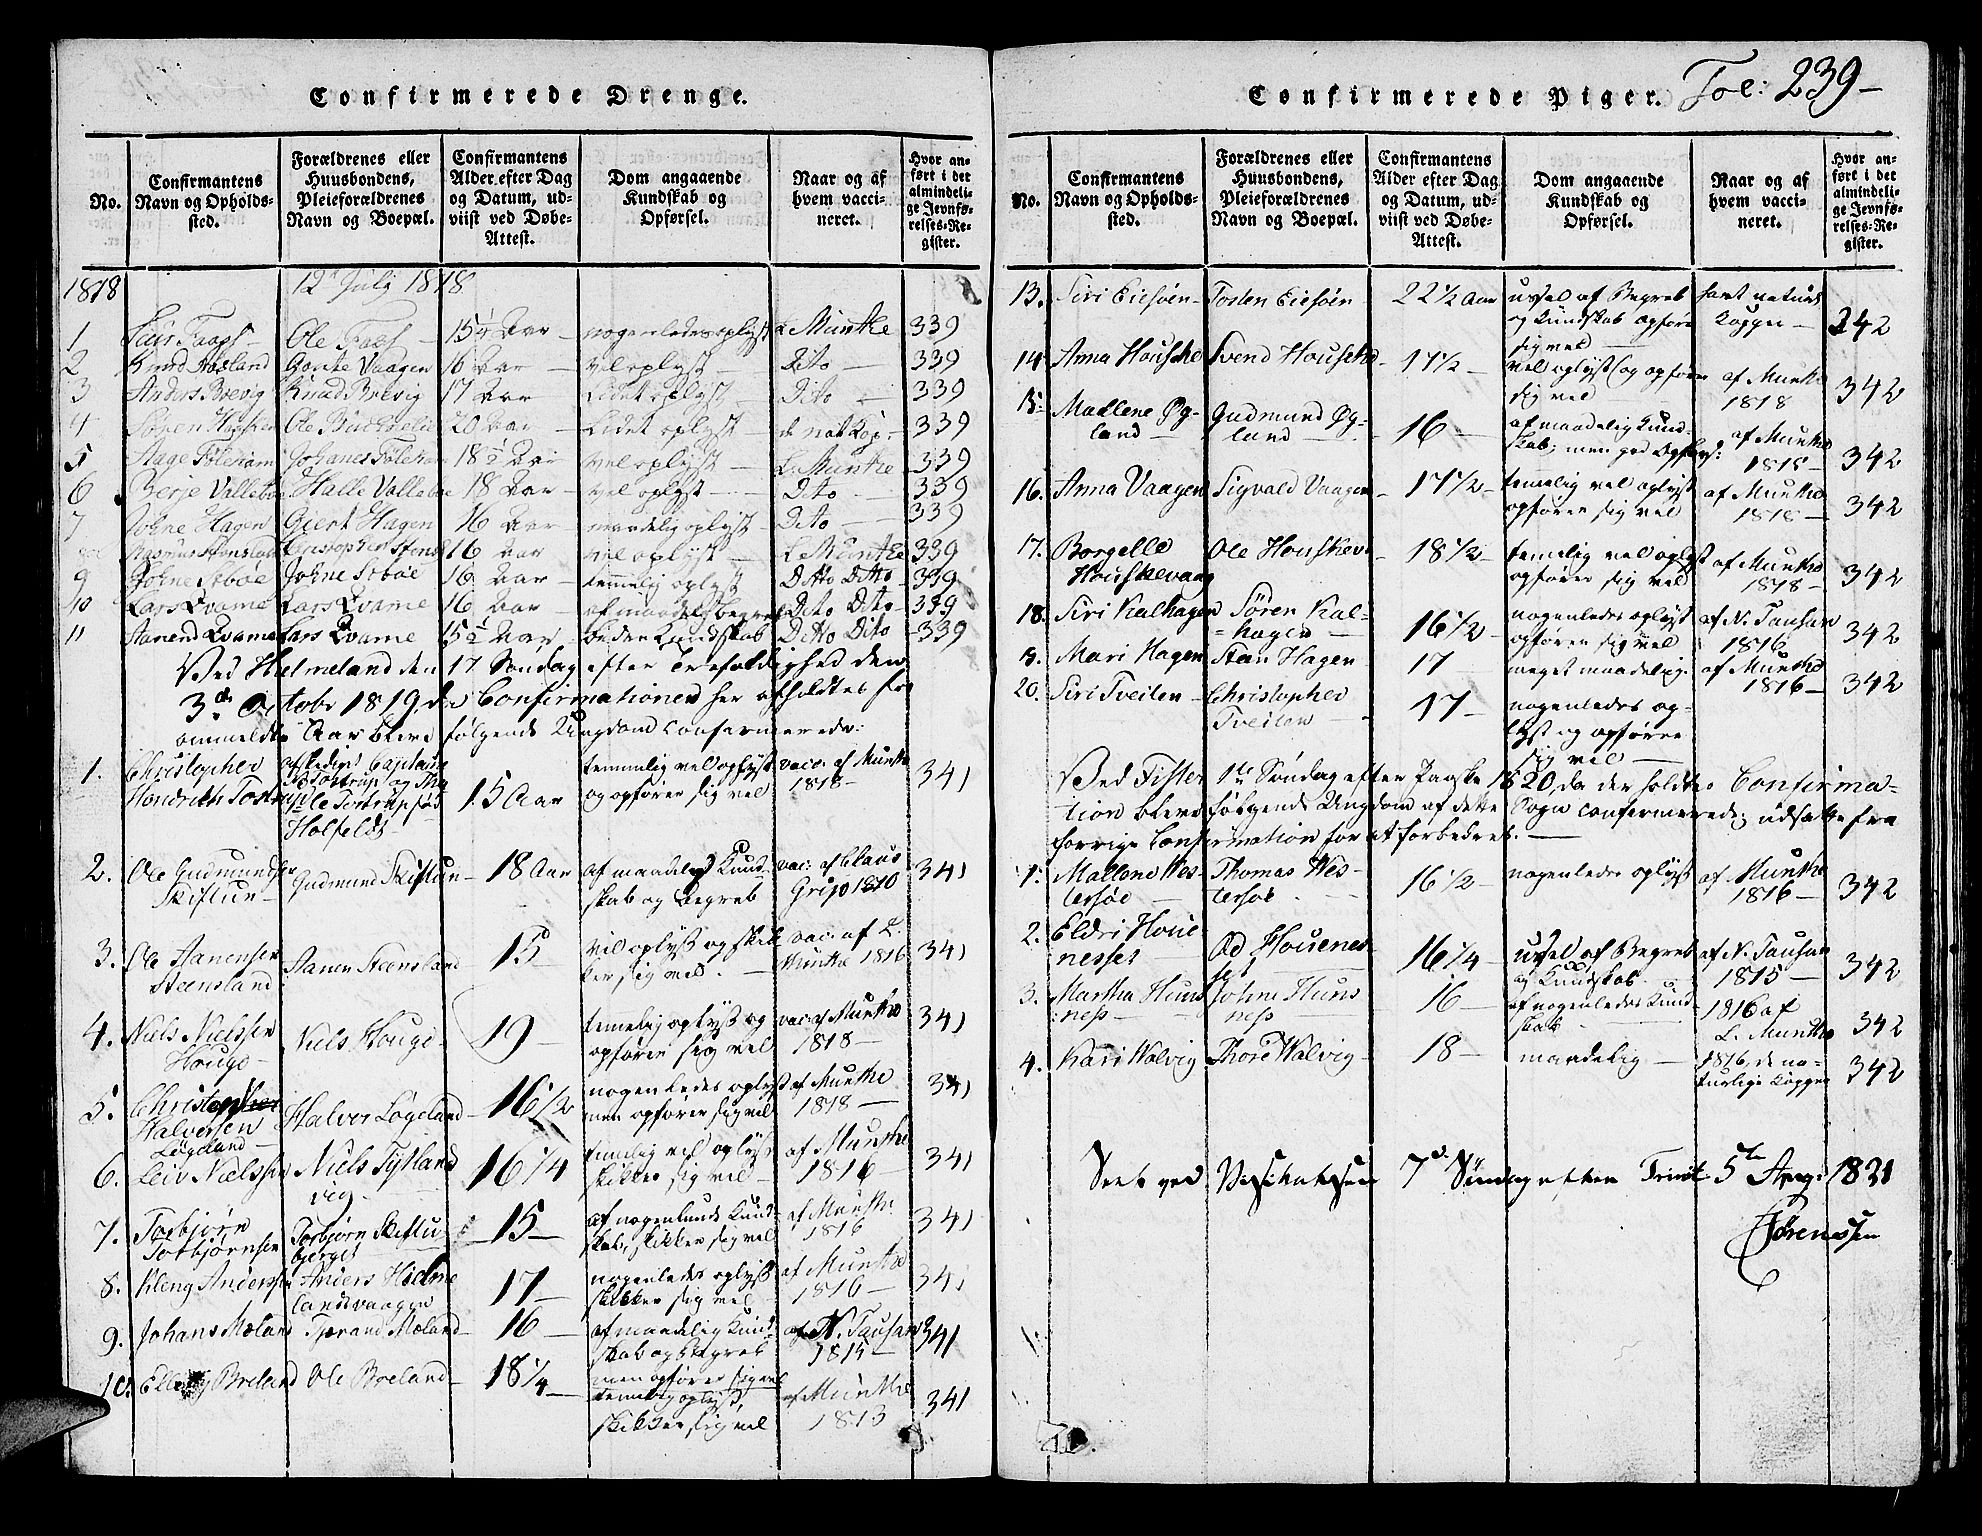 Confirmerede Drenge.
No.
Confirmantens Navn og Opholdssted.
Forældrenes eller Huusbondens, Pleieforældrenes Navn og Boepæl.
Confirmantens Alder efter Dag og Datum, udviist ved Døbe-Attest.
Dom angaaende Kundskab og Opførsel.
Naar og af hvem vaccineret.
Hvor anført i det almindelige Jevnførelses-Register.
1818 12 July 1818
1 Ole 15½ Aar nogenledes oplyst L Munthe 339
2 Knud Gonte Vaagen 16 Aar vel oplyst Dito 339
3 Anders Brevig Knud Brevig 17 Aar Lidet oplyst Dito 339
4 Ole 20 Aar Lidet oplyst de nat Kop: 339
5 Aage Johanes 18½ Aar vel oplyst L. Munthe 339
6 Berje Halle 18 Aar vel oplyst Dito 339
7 Johne Hagen Giert Hagen 16 Aar maadelig oplyst Dito 339
Rasmus 16 Aar vel oplyst L Munthe 339
9 Johne Johne 16 Aar temmelig oplyst Ditto Ditto 339
10 Lars Qvame Lars Qvame 16 Aar af maadelig begreb Dito Dito 339
11 Aanend Qvame Lars Qvame 15½ Aar Kundskab Ditto Dito 339
Ved Hielmeland den 17 Søndag efter Trefoldighed den
3d October 1819, da Confirmationen her afholdtes for
ommeldte Aar bleve følgende Ungdom confirmerede:
1. Christopher Hendrich Tostrup
Capitain Tostrup og
Holfeldt
15 Aar
temmelig vel oplyst og opfører sig vel
vacc. af Munthe 1818
341
2. Ole Gudmundsen Skiftun
Gudmund Skiftun
18 Aar
af maadelig Kundskab og Begreb
vac: af Claus Grijp 1810
341
3. Ole Aanensen Steensland
Aanen Steensland
15
vel oplyst og skikker sig vel.
vac: af L. Munthe 1816
341
4. Niels Nielssen Houge
Niels Houge
19
temelig oplyst og opfører sig vel
vac: af Munthe 1818
341
5. Christopher Halversen Løgeland
Halver Løgeland
16 1/2
nogenledes oplyst men opfører sig vel
af Munthe 1818
341
6. Leiv Nielssen
Niels Tytlandvig
16 1/4
temelig vel oplyst skikker sig vel
af Munthe 1816
341
7. Torbjørn Torbjørnsen
Torbjørn
15
af nogenlunde Kundskab, skikker sig vel
af Munthe 1816
341
8. Kleng Anderssen
Anders Hielmelandsvaagen
17
nogenledes oplyst skikker sig vel
af Munthe 1816
341
9. Johans Mæland
Tjerand Mæland
16
af maadelig Kundskab og begreb men opfører sig vel
af N. Tausan 1815
341
10. Breland
Ole Breland
18 1/4
temelig oplyst, skikker sig vel
af Munthe 1813
341
Confirmerede Piger. Fol: 239
No.
Confirmantens Navn og Opholdssted.
Forældrenes eller Huusbondens, Pleieforældrenes Navn og Boepæl.
Confirmantens Alder efter Dag og Datum, udviist ved Døbe-Attest.
Dom angaaende Kundskab og Opførsel.
Naar og af hvem vaccineret.
Hvor anført i det almindelige Jevnførelses-Register.
13. Siri Eiesøen
Tosten Eiesøen
22 1/2 Aar
ussel af Begreb og Kundskab opfører sig vel
havt naturl. Kopper
342
14 Anna Houske
Svend Houske
17 1/2
vel oplyst og opfører sig vel
af Munthe 1818
342
15. Madlene Øgland
Gudmund Øgland
16
af maadelig Kundskab; men god Opførs:
af Munthe 1818
342
16. Anna Vaagen
Sigvald Vaagen
17 1/2
temelig vel oplyst opfører sig vel
af Munthe 1818
342
17. Borgelle Houskevaag
Ole Houskev:
18 1/2
temelig vel oplyst opfører sig vel
af Munthe 1818
342
18. Siri Kalhagen
Søren Kalhagen
16 1/2
nogenledes oplyst opfører sig vel
af N. Tausan 1816
342
19. Mari Hagen
Sten Hagen
17
meget maadelig.
af Munthe 1816
342
20. Siri Tveiten
Christopher Tveiten
17
nogenledes oplyst og opfører sig vel
Ved Fister 1ste Søndag efter Paaske 1820, da der holdtes Confirmation
bleve følgende Ungdom af dette Sogn confirmerede; udsatte fra
forrige Confirmation for at forbedres.
1. Madlene Westersøe
Thomas Westersøe
16 1/2
nogenledes oplyst
af Munthe 1816
342
2. Eldri Houenesset
Od Houenesset
16 1/4
ussel af Begreb og Kundskab.
af N. Tausan 1815
342
3. Martha Hunsness
Johne Hunsness
16
af nogenledes Kundskab
1816 af L. Munthe
342
4. Kari Walvig
Thore Walvig
18
maadelig
1816, de naturlige Kopper
342
Seet ved Visitatsen 7d Søndag efter Trinit. 5te Aug: 1821
Sørenssen